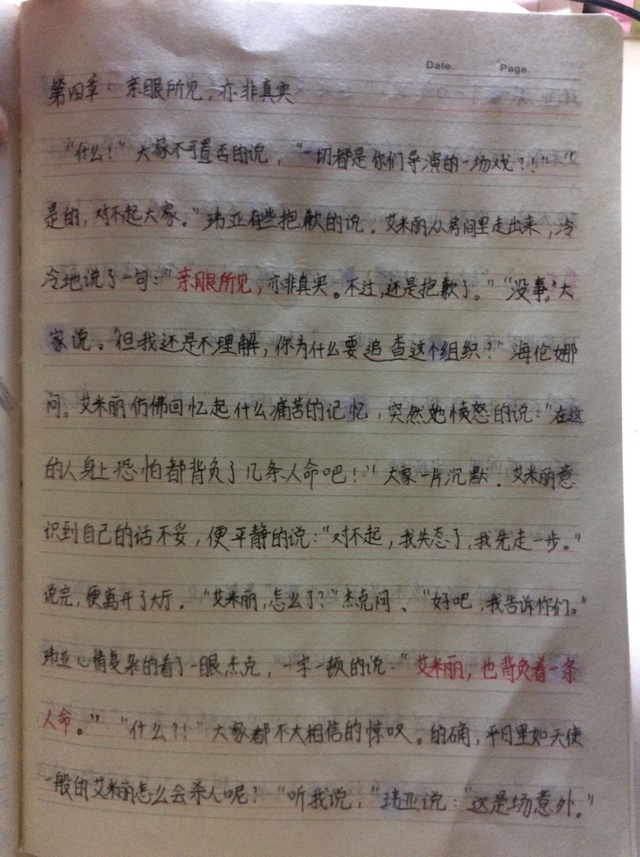 Date.        Page.
第四章：亲眼所见，亦非真实
“什么！”大家不可置否的说，“一切都是你们导演的一场戏？！”“
是的，对不起大家。”玮亚有些抱歉的说。艾米丽从房间里走出来，冷
冷地说了一句：“亲眼所见，亦非真实。不过，还是抱歉了。”“没事。”大
家说。“但我还是不理解，你为什么要追查这个组织？”海伦娜
问。艾米丽仿佛回忆起什么痛苦的记忆，突然她愤怒的说：“在这
的人身上恐怕都背负了几条人命吧！”大家一片沉默。艾米丽意
识到自己的话不妥，便平静的说：“对不起，我失态了，我先走一步。”
说完，便离开了大厅。“艾米丽，怎么了？”杰克问、“好吧，我告诉你们。”
玮亚心情复杂的看了一眼杰克，一字一顿的说：“艾米丽，也背负着一条
人命。”“什么？！”大家都不大相信的惊叹。的确，平日里如天使
一般的艾米丽怎么会杀人呢？“听我说，”玮亚说：“这是场意外。”